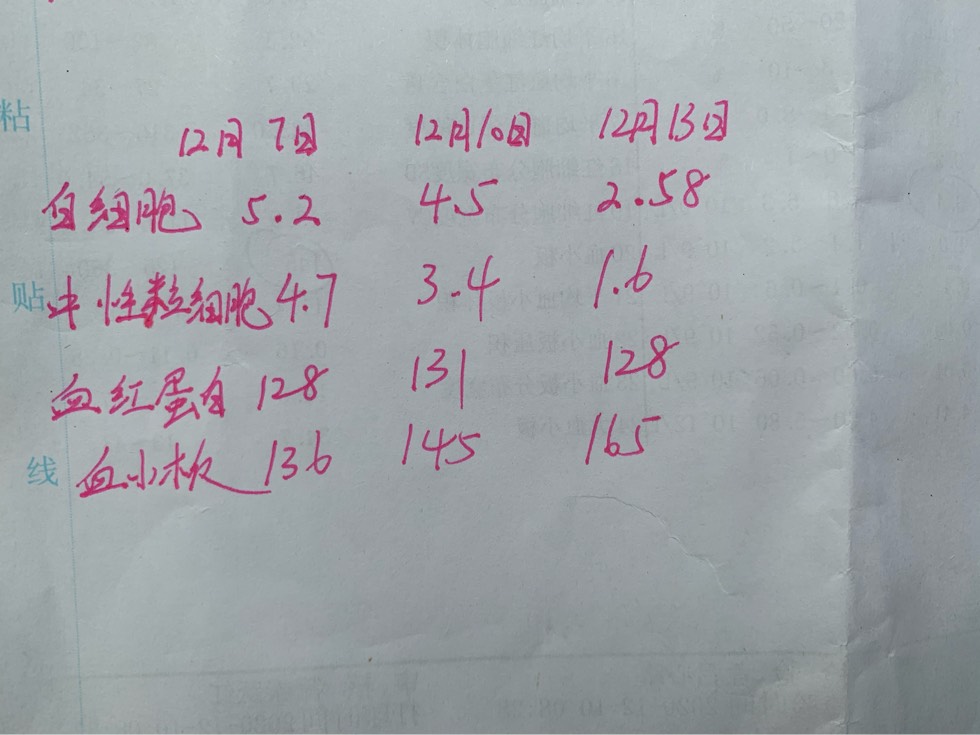 12月7日 12月10日 12月13日
粘
白细胞 5.2 4.5 2.58
贴
中性粒细胞 4.7 3.4 1.6
血红蛋白 128 131 128
线
血小板 136 145 165